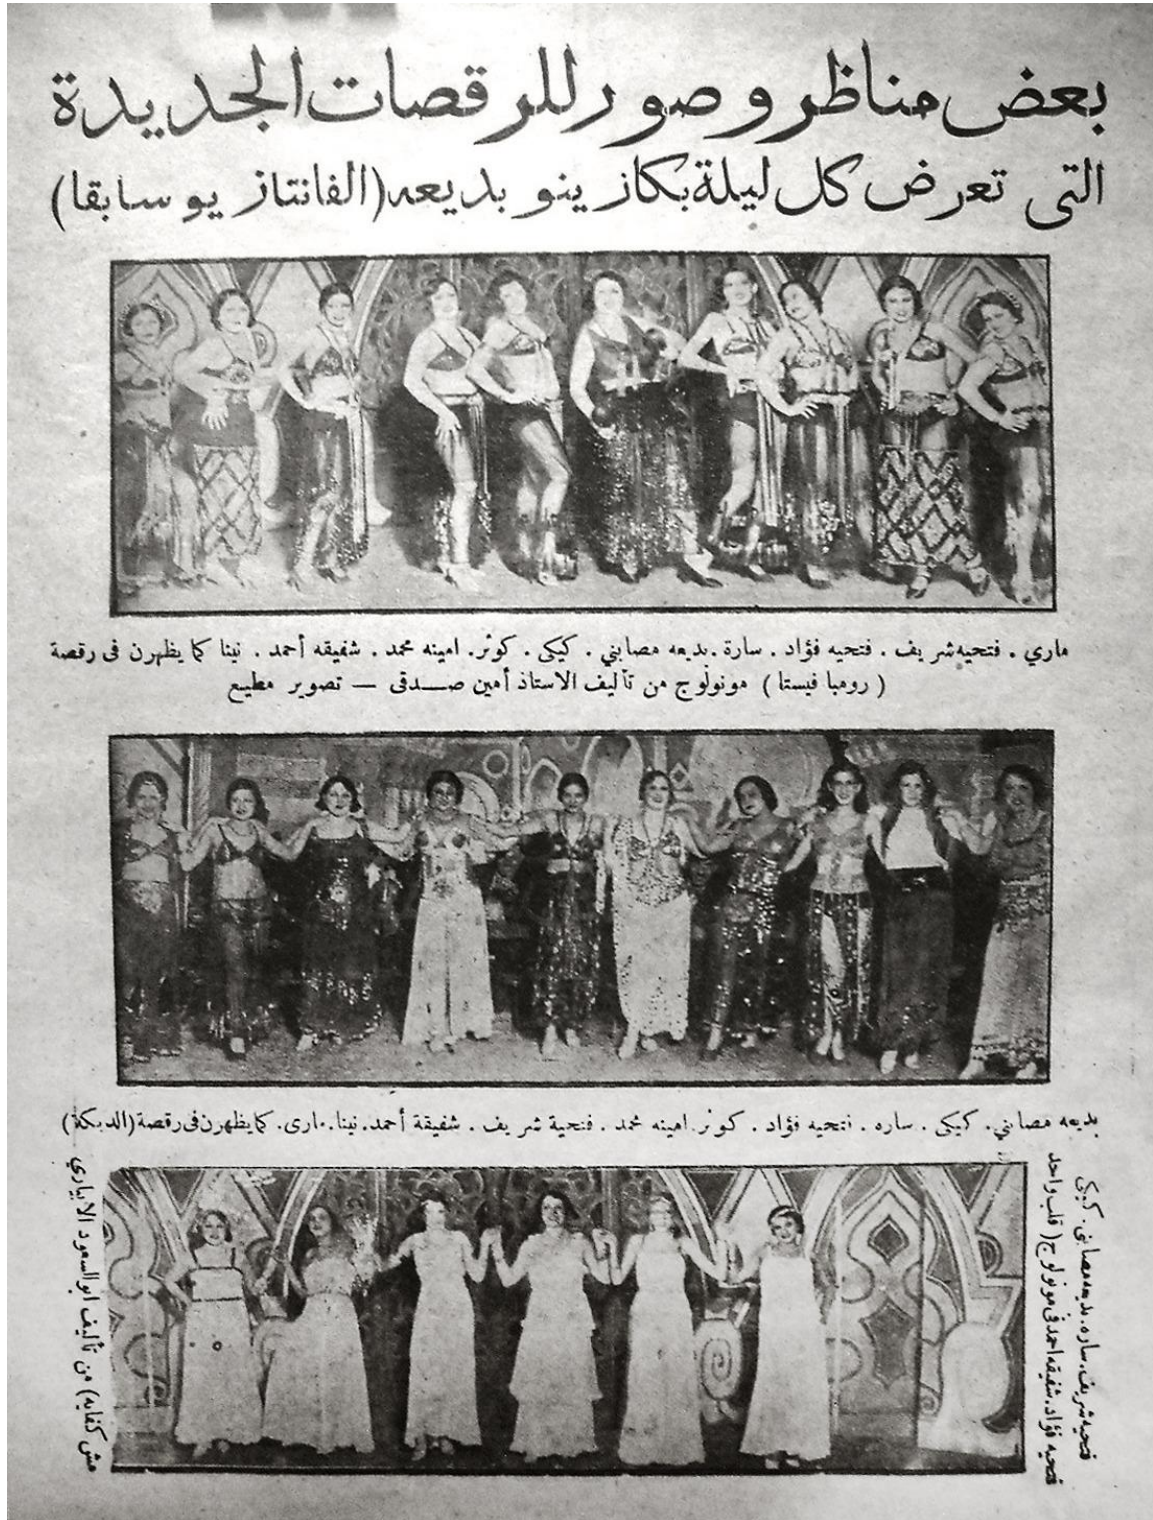 بعض مناظر وصور للرقصات الجديدة
التى تعرض كل ليلة بكازينو بديعه (الفانتازيو سابقا)
ماري . فتحيه شريف . فتحيه فؤاد . سارة . بديعه مصابني . كيكى . كوثر . امينه محمد . شفيقه أحمد . نينا كما يظهرن فى رقصة
( رومبا فيستا ) مونولوج من تأليف الاستاذ أمين صدقى — تصوير مطيع
بديعه مصابني . كيكى . ساره . فتحيه فؤاد . كوثر . امينه محمد . فتحية شريف . شفيقة أحمد . نينا . مارى . كما يظهرن فى رقصة (الدبكة)
فتحيه شريف . ساره . بديعه مصابنى . كيكى
فتحيه فؤاد . شفيقه احمد فى مونولوج ( قلب واحد
مش كفايه ) من تأليف ابو السعود الابياري